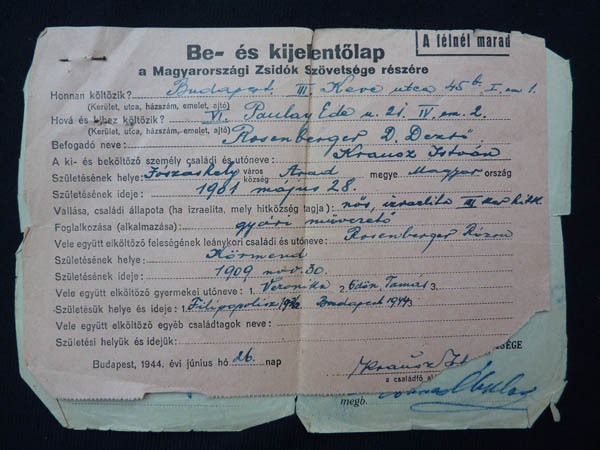 A félnél marad
Be- és kijelentőlap
a Magyarországi Zsidók Szövetsége részére
Honnan költözik? Budapest, III Keve utca 45b. I. em 1.
(Kerület, utca, házszám, emelet, ajtó)
Hová és kihez költözik? VI. Paulay Ede u. 21. IV em. 2.
(Kerület, utca, házszám, emelet, ajtó)
Befogadó neve: Rosenberger D. Dezső
A ki- és beköltöző személy családi és utóneve: Krausz István
Születésének helye: város község Arad megye Magyar ország
Születésének ideje: 1901 május 28.
Vallása, családi állapota (ha izraelita, mely hitközség tagja): nős, izraelita III ker hitk.
Foglalkozása (alkalmazása): gyári művezető
Vele együtt elköltöző feleségének leánykori családi és utóneve: Rosenberger Rózsa
Születésének helye: Körmend
Születésének ideje: 1909 nov. 30.
Vele együtt elköltöző gyermekei utóneve: 1. Veronika 2. Ödön, Tamás 3.
Születésük helye és ideje: 1. Budapest 1944 3.
Vele együtt elköltöző egyéb családtagok neve:
Születési helyük és idejük:
Budapest, 1944. évi június hó 26. nap
Krausz
a családfő
SÉGE
megb.